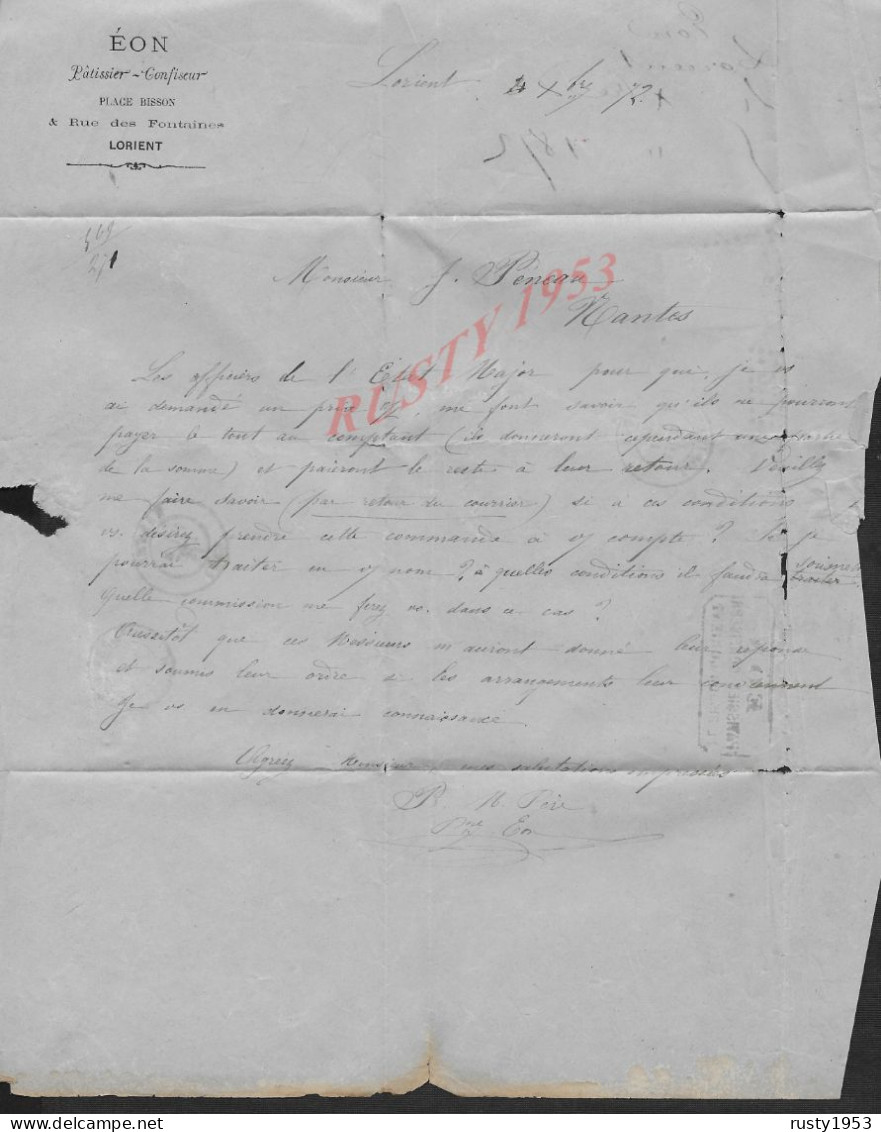 ÉON
Pâtissier-Confiseur
PLACE BISSON
& Rue des Fontaines
LORIENT
Lorient 4 Xbre 72.
1872
Monsieur J. Péneau
Nantes
RUSTY 1953
Les officiers de l'État Major pour qui je vs
ai demandé un prix me font savoir qu'ils ne pourront
payer le tout au comptant (ils donneront cependant une
de la somme) et pairont le reste à leur retour. Veuillez
me faire savoir (par retour du courrier) si à ces conditions
vs. désirez prendre cette commande à vy compte? Si je
pourrai traiter en vy nom? à quelles conditions il faudra
Quelle commission me ferez vs. dans ce cas?
Aussitôt que ces Messieurs m'auront donné leur réponse
et soumis leur ordre si les arrangements leur conviennent
Je vs. en donnerai connaissance.
Agréez Monsieur mes salutations empressées
Eon
delcampe.net
rusty1953